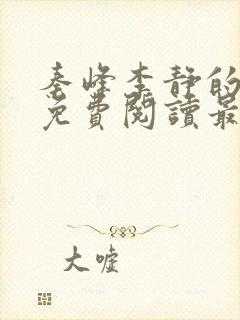 秦峰李静的
免費閱讀最
大嘘